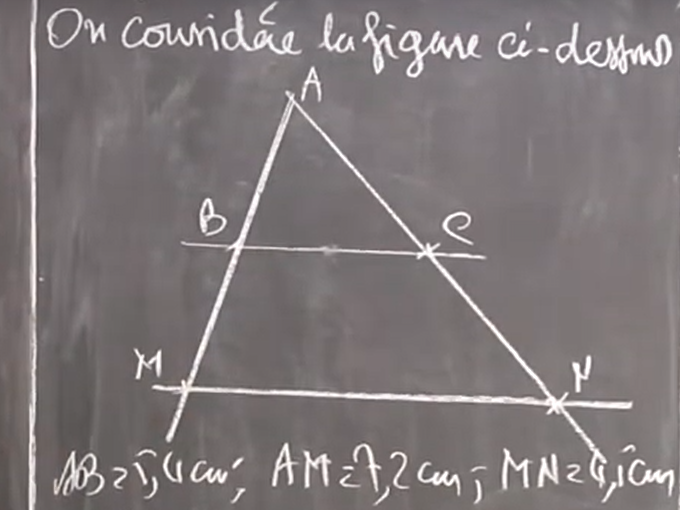 On considère la figure ci-dessus
A
B C
M N
AB = 5,4 cm; AM = 7,2 cm; MN = 4,1 cm